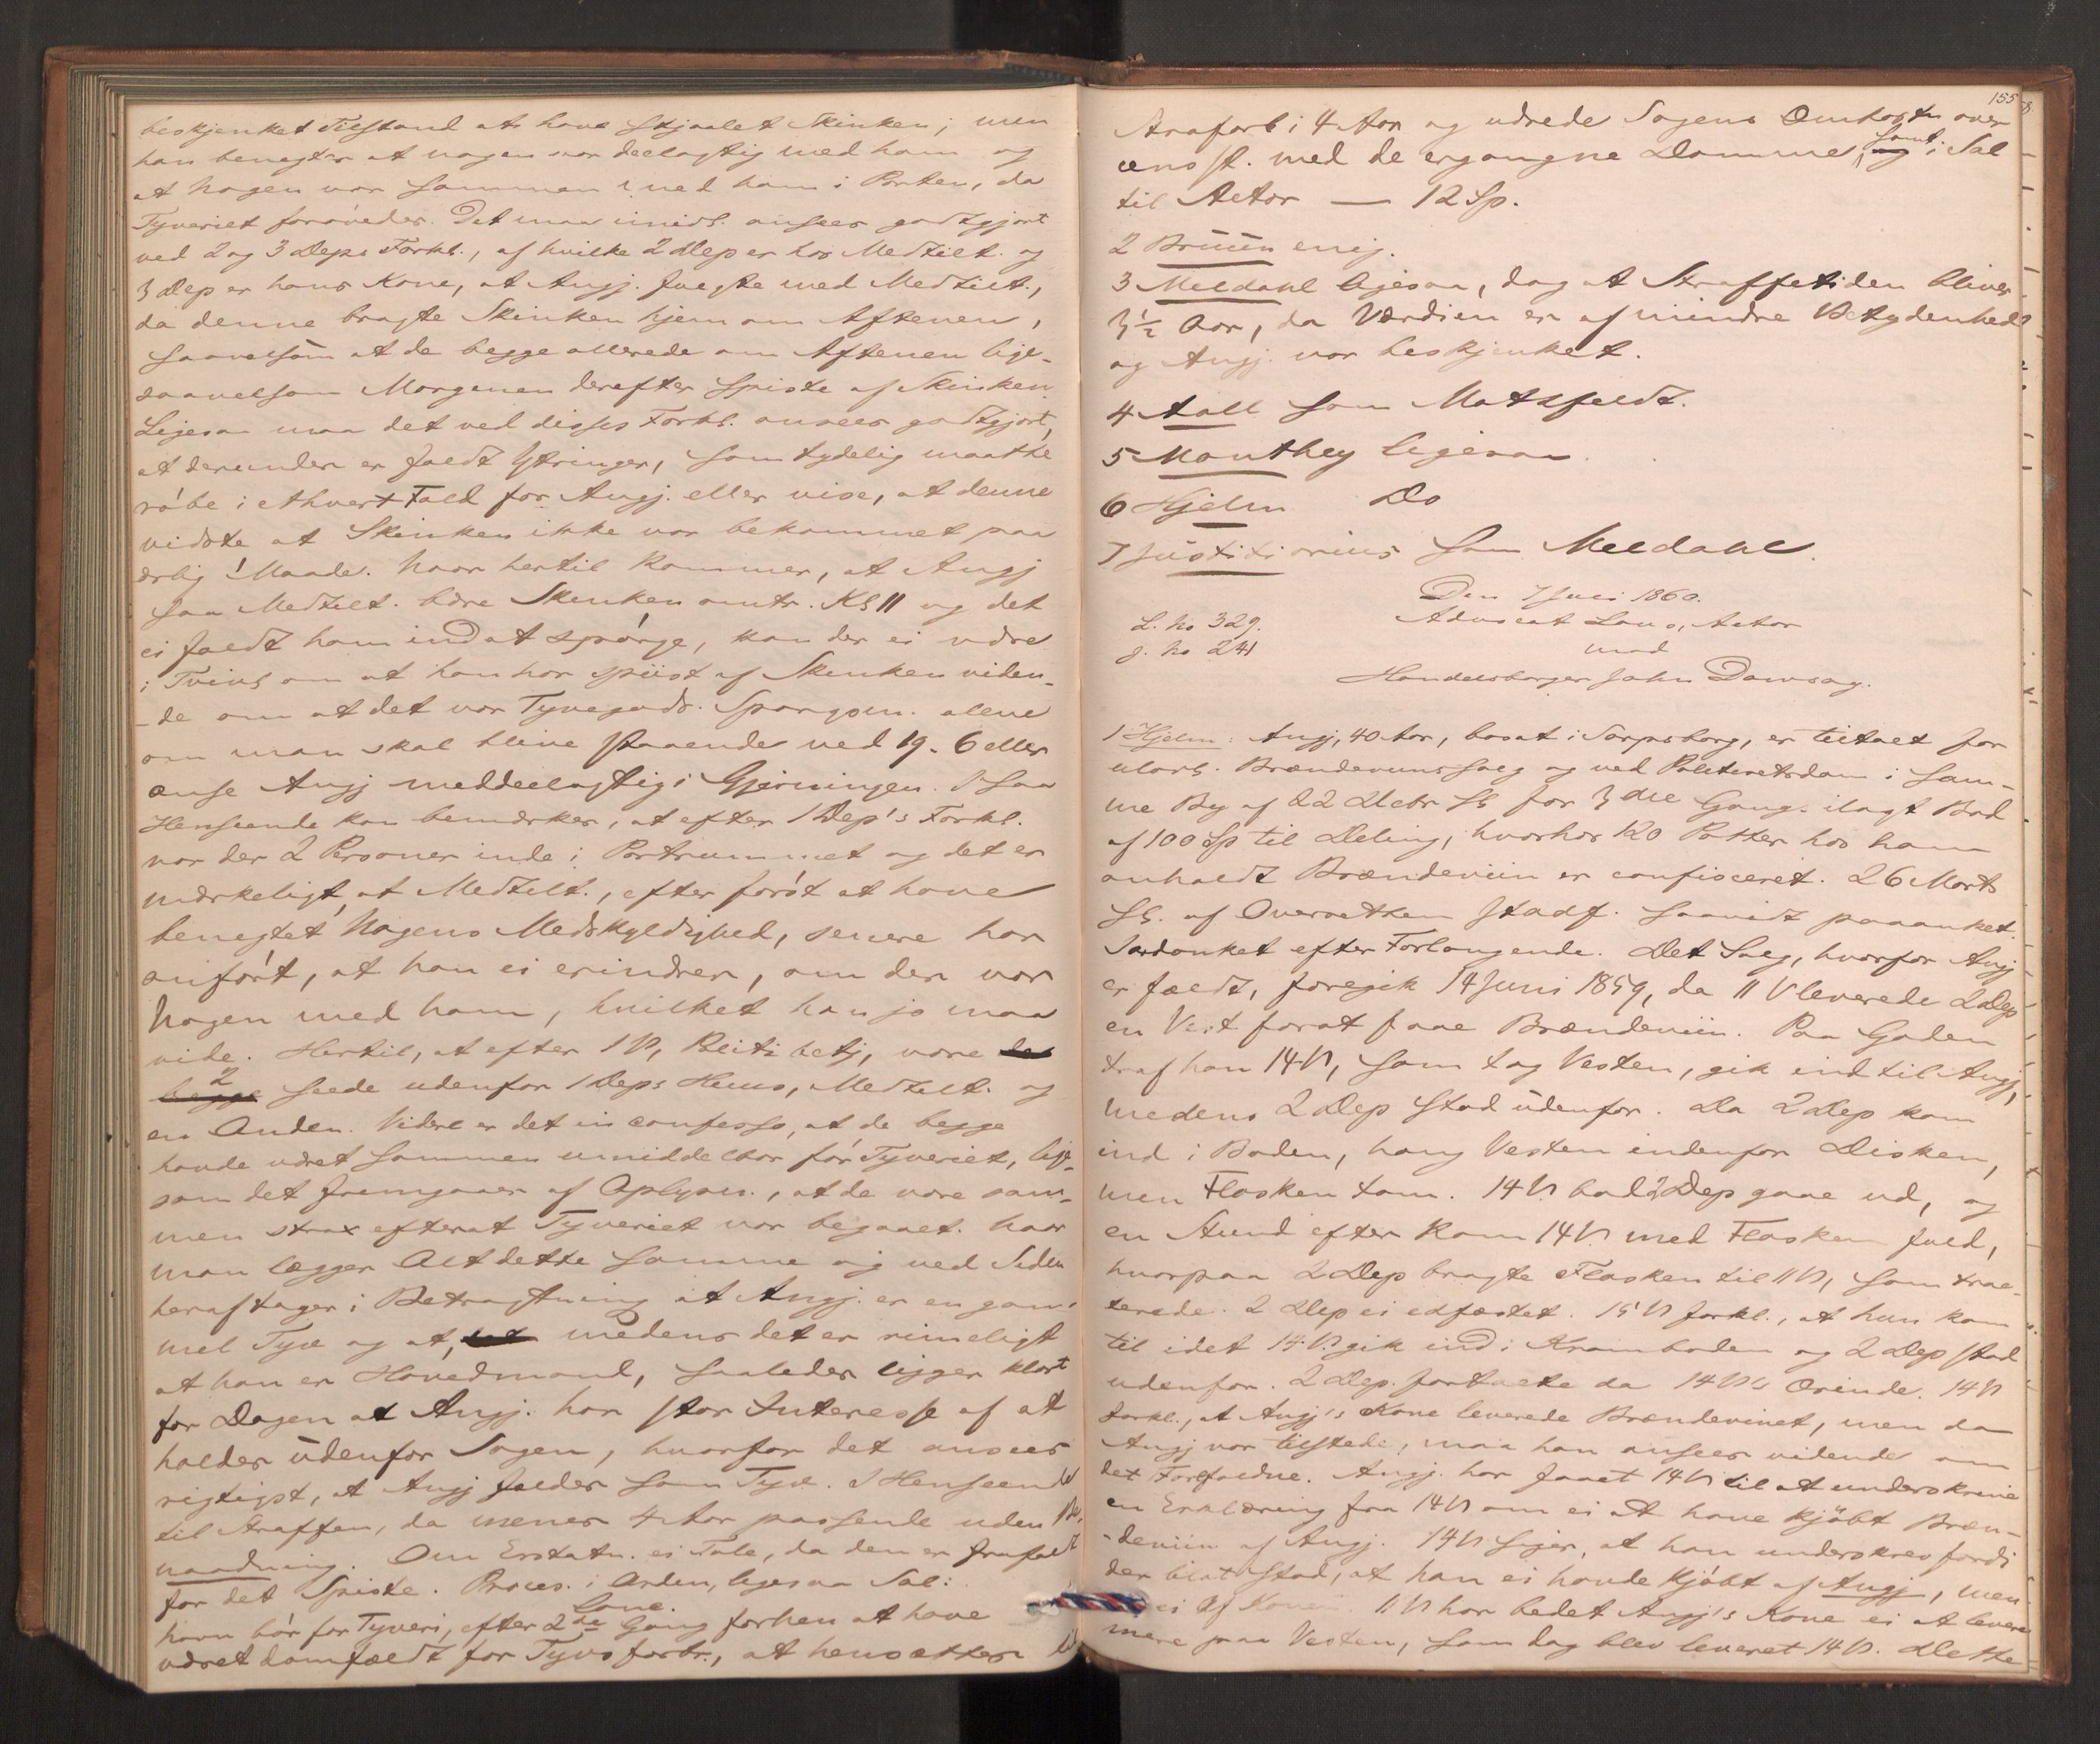 beskjenket Tilstand at have stjaalet Skinken; men
han benegter at nogen var deelagtig med ham og
at Nogen var sammen med ham i Porten, da
Tyveriet forøvedes. Det maa imidl. ansees godtgjort
ved 2 og 3 Deps Forkl., af hvilke 2 Dep er hos Medtilt. og
3 Dep er hans Kone, at Angj. fulgte med Medtilt.,
da denne bragte Skinken hjem om Aftenen,
saavelsom at de begge allerede om Aftenen lige-
saavelsom Morgenen derefter spiste af Skinken.
Ligesaa maa det ved disses Forkl. ansees godtgjort,
at derunder er faldt Ytringer, som tydelig maatte
røbe i ethvert Fald for Angj. eller vise, at denne
vidste at Skinken ikke var bekommet paa
ærlig Maade. Naar hertil kommer, at Angj
saa Medtilt. bære Skinken omtr. Kl 11 og det
ei faldt ham ind at spørge, kan der ei være
i Tvivl om at han har spiist af Skinken viden-
-de om at det var Tyvegods. Spørgsm. alene
om man skal blive staaende ved 19-6 eller
anse Angj meddeelagtig i Gjerningen. I saa
Henseende kan bemærkes, at efter 1 Dep's Forkl.
var der 2 Personer inde i Portrummet og det er
mærkeligt, at Medtilt., efter først at have
benegtet Nogens Medskyldighed, senere har
anført, at han ei erindrer, om der var
Nogen med ham, hvilket han jo maa
vide. Hertil, at efter 1 V, Politibetj, vare
2 seede udenfor 1 Deps Huus, Medtilt. og
en Anden. Videre er det in confesso, at de begge
havde været sammen umiddelbar før Tyveriet, lige-
som det fremgaaer af Oplysn., at de vare sam-
men strax efterat Tyveriet var begaaet. Naar
man lægger Alt dette sammen og ved Siden
heraf tager i Betragtning at Angj. er en gam-
mel Tyv og at, medens det er rimeligt
at han er Hovedmand, saaledes ligger klart
for Dagen at Angj. har stor Interesse af at
holdes udenfor Sagen, hvorfor det ansees
rigtigst, at Angj fældes som Tyv. I Henseende
til Straffen, da menes 4 Aar passende uden Be-
naadning. Om Erstatn. ei Tale, da den er frafaldt
for det Spiste. Proces. i Orden, ligesaa Sal:
Conc.
havn bør for Tyveri, efter 2de Gang forhen at have
været domfældt for Tyvsforbr., at hensættes til
155
Strafarb i 4 Aar og udrede Sagens Omkostn over
ensst. med de ergangne Domme, samt i Sal
til Actor — 12 Sp.
2 Bruun enig.
3 Meldahl ligesaa, dog at Straffetiden bliver
3½ Aar, da Værdien er af mindre Betydenhed
og Angj. var beskjenket.
4 Aall som Motzfeldt.
5 Manthey ligesaa.
6 Hjelm Do
7 Justitiarius som Meldahl.
Den 7 Juli 1860.
L. No 329. Advocat Lous, Actor
J. No 241 mod
Handelsborger John Dawsøy.
1 Hjelm: Angj, 40 Aar, bosat i Sarpsborg, er tiltalt for
ulovl. Brændeviinssalg og ved Politiretsdom i sam-
me By af 22 Decbr f. for 3die Gang ilagt Bod
af 100 Sp til Deling, hvorhos 120 Potter hos ham
anholdt Brændeviin er confisceret. 26 Marts
sl. af Overretten stadf. saavidt paaanket.
Indanket efter Forlangende. Det Salg, hvorfor Angj
er fældt, foregik 14 Juni 1859, da 11 V leverede 2 Dep
en Vest forat faae Brændeviin. Paa Gaden
traf han 14 V, som tog Vesten, gik ind til Angj,
medens 2 Dep stod udenfor. Da 2 Dep kom
ind i Boden, hang Vesten indenfor Disken,
men Flasken tom. 14 V bad 2 Dep gaae ud, og
en Stund efter kom 14 V med Flasken fuld,
hvorpaa 2 Dep bragte Flasken til 11 V, som trac-
terede. 2 Dep ei edfæstet. 15 V forkl., at hun kom
til idet 14 V gik ind i Kramboden og 2 Dep stod
udenfor. 2 Dep. fortalte da 14 V's Ærinde. 14 V
forkl., at Angj's Kone leverede Brændevinet, men da
Angj var tilstede, maa han ansees vidende om
det Forefaldne. Angj. har faaet 14 V til at underskrive
en Erklæring fra 14 V om ei at have kjøbt Bræn-
-deviin af Angj. 14 V siger, at han underskrev fordi
der blot stod, at han ei havde kjøbt af Angj, men
ei af Konen. 11 V har bedet Angj's Kone ei at levere
mere paa Vesten, som dog blev leveret 14 V. Dette